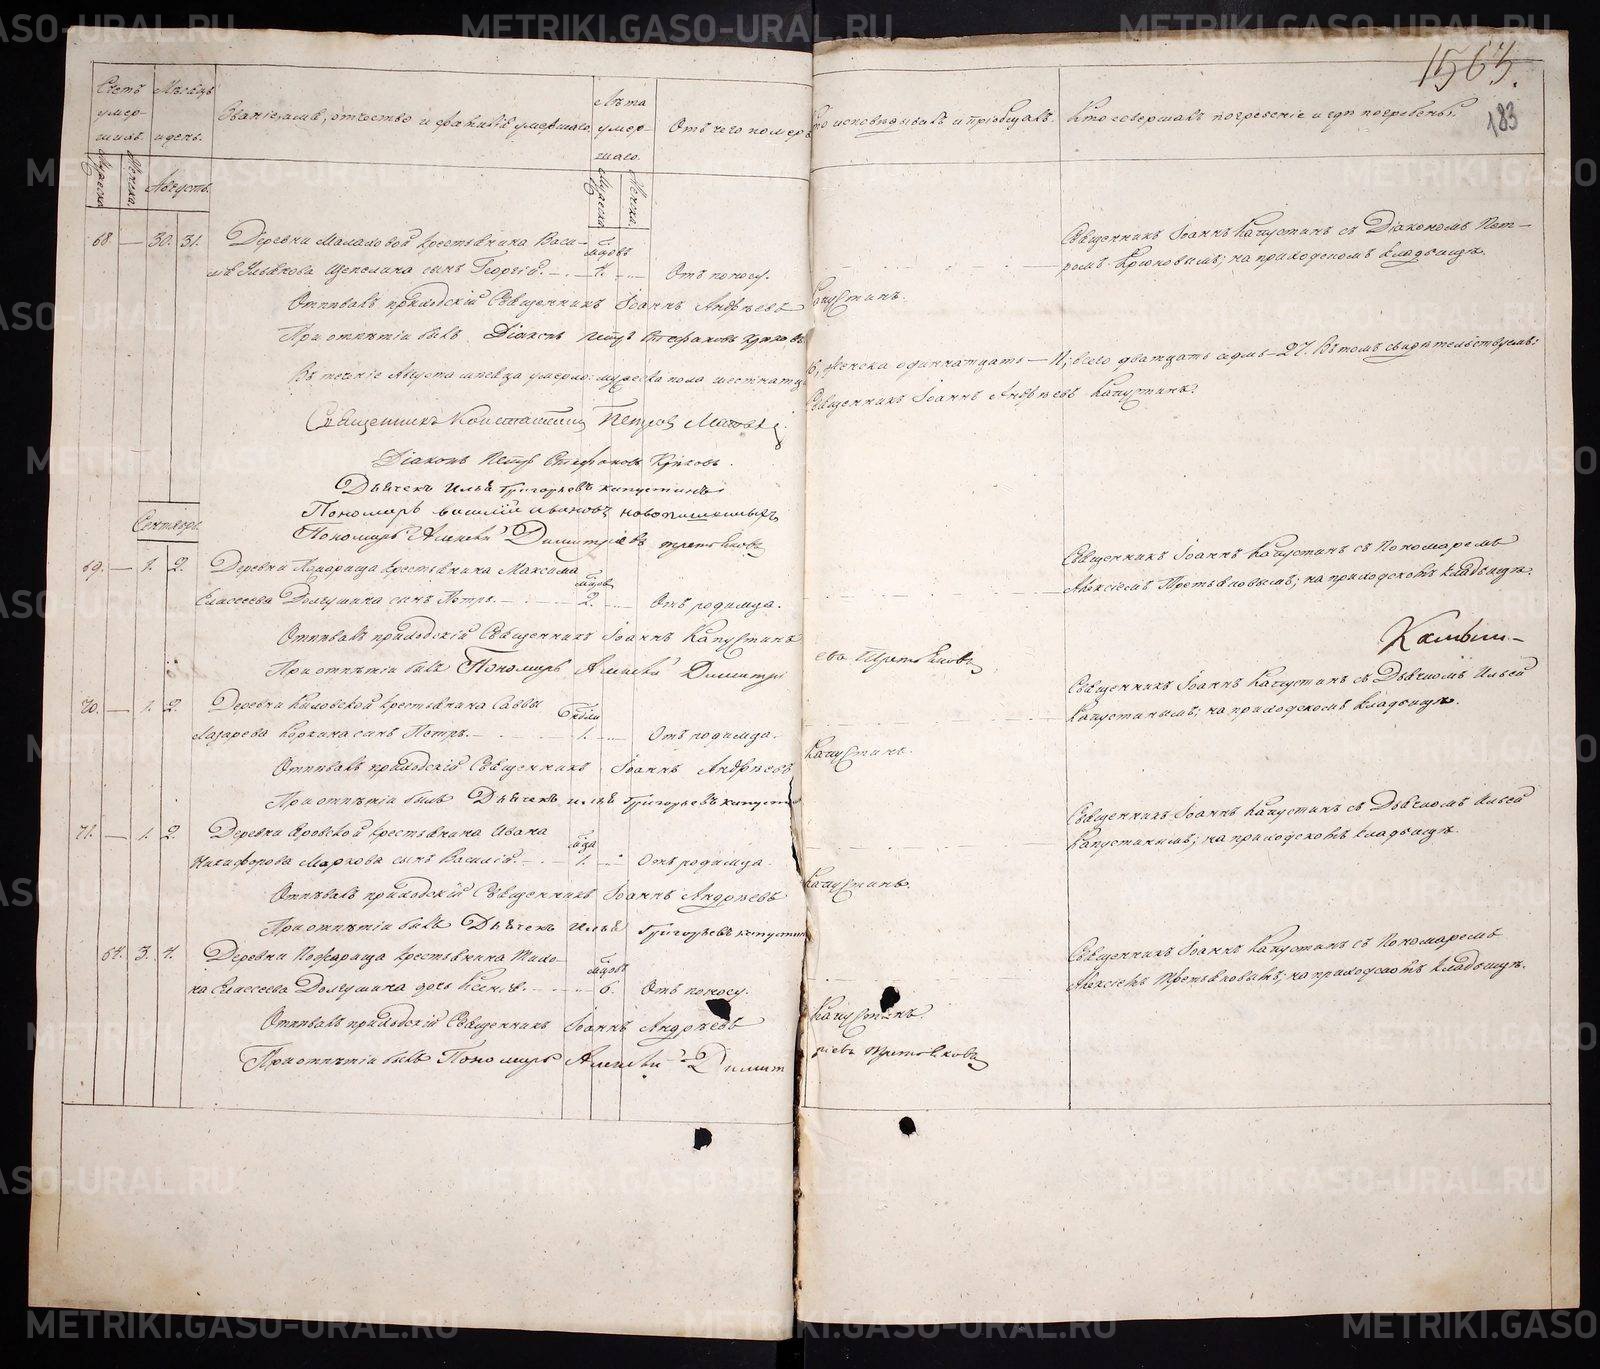 1563.
183
Счетъ умер-шихъ.
Мѣсяцъ и день.
Званіе, имя, отчество и фамилія умершаго.
Лѣта умер-шаго.
Отъ чего померъ
Кто исповѣдывалъ и пріобщалъ.
Кто совершалъ погребеніе и гдѣ погребены.
Мужеска. Женска. Августъ. Мужеска. Женска.
68. — 30. 31. Деревни Малаховой крестьянина Васи-
Отъ поносу.
сынъ Георгій.
Священникъ Іоаннъ Капустинъ съ Діакономъ Пет-
ромъ Крюковымъ; на приходскомъ кладбищѣ.
Отпѣвалъ приходскій Священникъ Іоаннъ Андреевъ Капустинъ.
При отпѣтіи былъ Діаконъ Петръ Стефановъ Крюковъ
Въ теченіе Августа мѣсяца умерло: мужеска пола шестнатцать 16, женска одиннатцать — 11; всего дватцать седмь — 27. Въ томъ свидѣтельствуемъ:
Священникъ Іоаннъ Андреевъ Капустинъ.
Священникъ Константинъ Петровъ
Діаконъ Петръ Стефановъ Крюковъ.
Дьячекъ Илья Григорьевъ Капустинъ
Пономарь Василій Ивановъ Новопашенныхъ
Пономарь Алексѣй Димитріевъ Третьяковъ
Сентябрь.
69. — 1. 2. Деревни Пожарища крестьянина Максима
Елисеева Долгушина сынъ Петръ. — мѣсяцов 2. Отъ родимца.
Священникъ Іоаннъ Капустинъ съ Пономаремъ
Алексіемъ Третьяковымъ; на приходскомъ кладбищѣ.
Отпѣвалъ приходскій Священникъ Іоаннъ Капустинъ
При отпѣтіи былъ Пономарь Алексѣй Димитріевъ Третьяковъ
Камыш-
70. — 1. 2. Деревни Киловской крестьянина Саввы
Лазарева Коркина сынъ Петръ. — 1. Отъ родимца.
Священникъ Іоаннъ Капустинъ съ Дьячкомъ Ильею
Капустинымъ; на приходскомъ кладбищѣ.
Отпѣвалъ приходскій Священникъ Іоаннъ Андреевъ Капустинъ.
При отпѣтіи былъ Дьячекъ Илья Григорьевъ Капустинъ
71. — 1. 2. Деревни Бровской крестьянина Ивана
Никифорова Маркова сынъ Василій. — 1. Отъ родимца.
Священникъ Іоаннъ Капустинъ съ Дьячкомъ Ильею
Капустинымъ; на приходскомъ кладбищѣ.
Отпѣвалъ приходскій Священникъ Іоаннъ Андреевъ Капустинъ.
При отпѣтіи былъ Дьячекъ Илья Григорьевъ Капустинъ
64. 3. 4. Деревни Пожарища крестьянина Тихо-
на Елисеева Долгушина дочь Ксенія. — 6. Отъ поносу.
Священникъ Іоаннъ Капустинъ съ Пономаремъ
Алексіемъ Третьяковымъ; на приходскомъ кладбищѣ.
Отпѣвалъ приходскій Священникъ Іоаннъ Андреевъ Капустинъ.
При отпѣтіи былъ Пономарь Алексѣй Димитріевъ Третьяковъ
METRIKI.GASO-URAL.RU